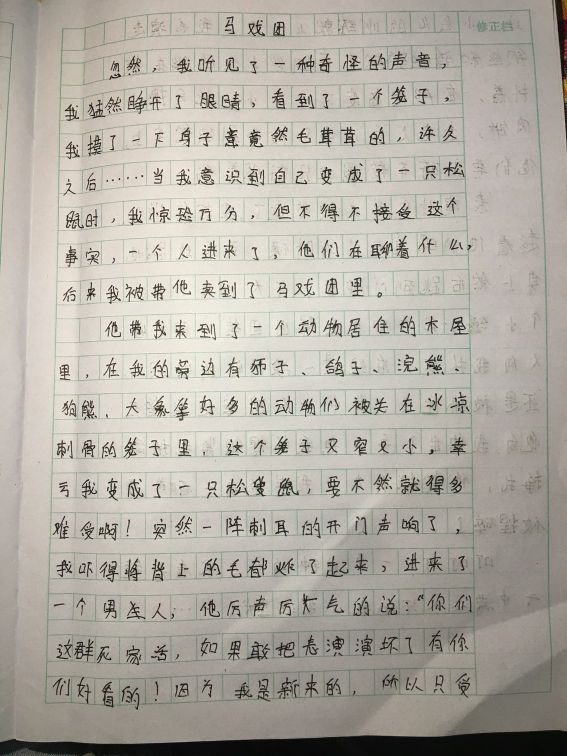 马戏团
修正档
忽然，我听见了一种奇怪的声音，
我猛然睁开了眼睛，看到了一个笼子，
我摸了一下身子竟竟然毛茸茸的，许久
之后……当我意识到自己变成了一只松
鼠时，我惊恐万分，但不得不接受这个
事实，一个人进来了，他们在聊着什么，
后来我被带他来到了马戏团里。
他带我来到了一个动物居住的木屋
里，在我的旁边有狮子、鸽子、浣熊、
狗熊、大象等好多的动物们被关在冰凉
刺骨的笼子里，这个笼子又窄又小。幸
亏我变成了一只松鼠，要不然就得多
难受啊！突然一阵刺耳的开门声响了，
我吓得将背上的毛都炸了起来，进来了
一个男人，他厉声厉气的说：“你们
这群死家活，如果敢把表演演坏了有你
们好看的！因为我是新来的，所以只受